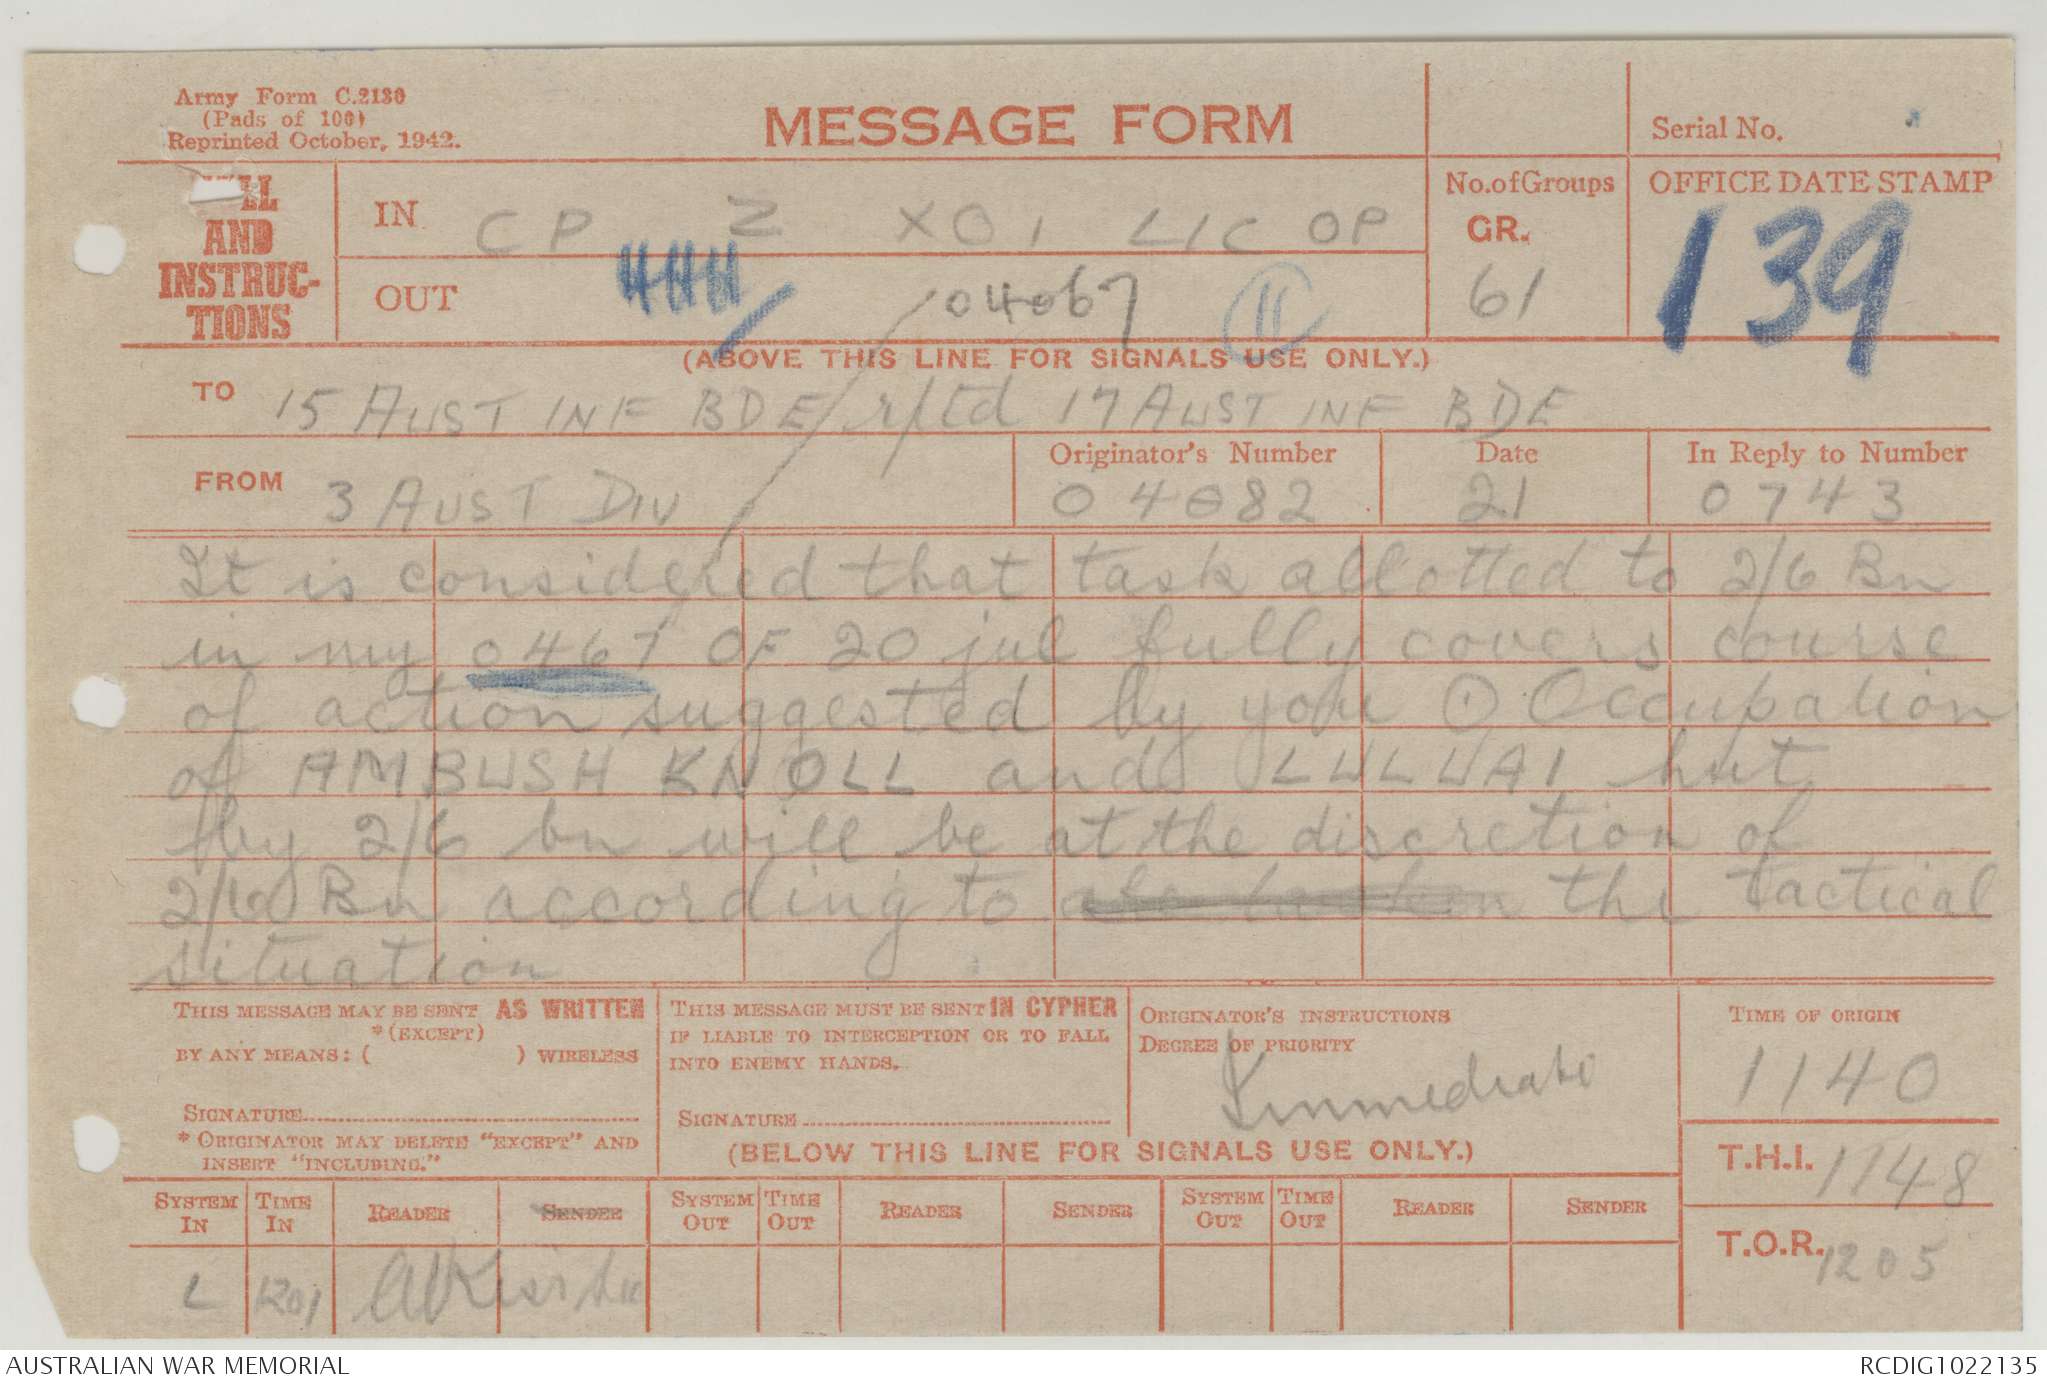 Army Form C.2130
(Pads of 100)
Reprinted October, 1942.
MESSAGE FORM
Serial No.
AND
INSTRUC-
TIONS
IN CP Z XO1 LIC OP
No. of Groups
GR.
61
OFFICE DATE STAMP
139
OUT 04067 11
(ABOVE THIS LINE FOR SIGNALS USE ONLY.)
TO 15 AUST INF BDE rptd 17 AUST INF BDE
FROM 3 AUST DIV
Originator's Number 04082
Date 21
In Reply to Number 0743
It is considered that task allotted to 2/6 Bn
in my 0467 OF 20 jul fully covers course
of action suggested by you Occupation
of AMBUSH KNOLL and LULUAI hut
by 2/6 bn will be at the discretion of
2/6 Bn according to the tactical
situation
THIS MESSAGE MAY BE SENT AS WRITTEN
*(EXCEPT)
BY ANY MEANS: ( ) WIRELESS
SIGNATURE
* ORIGINATOR MAY DELETE "EXCEPT" AND
INSERT "INCLUDING."
THIS MESSAGE MUST BE SENT IN CYPHER
IF LIABLE TO INTERCEPTION OR TO FALL
INTO ENEMY HANDS.
SIGNATURE
ORIGINATOR'S INSTRUCTIONS
DEGREE OF PRIORITY
Immediate
TIME OF ORIGIN
1140
(BELOW THIS LINE FOR SIGNALS USE ONLY.)
T.H.I. 1148
T.O.R. 1205
SYSTEM IN TIME IN READER SENDER SYSTEM OUT TIME OUT READER SENDER SYSTEM OUT TIME OUT READER SENDER
L 1201
AUSTRALIAN WAR MEMORIAL RCDIG1022135